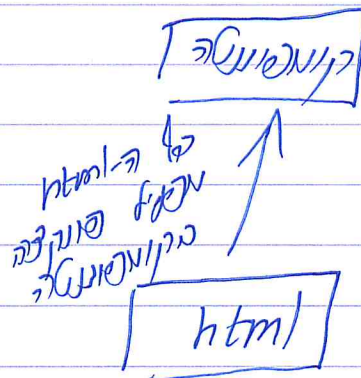 קומפוננטה
ה-html
מפעיל פונקציה
בקומפוננטה
html